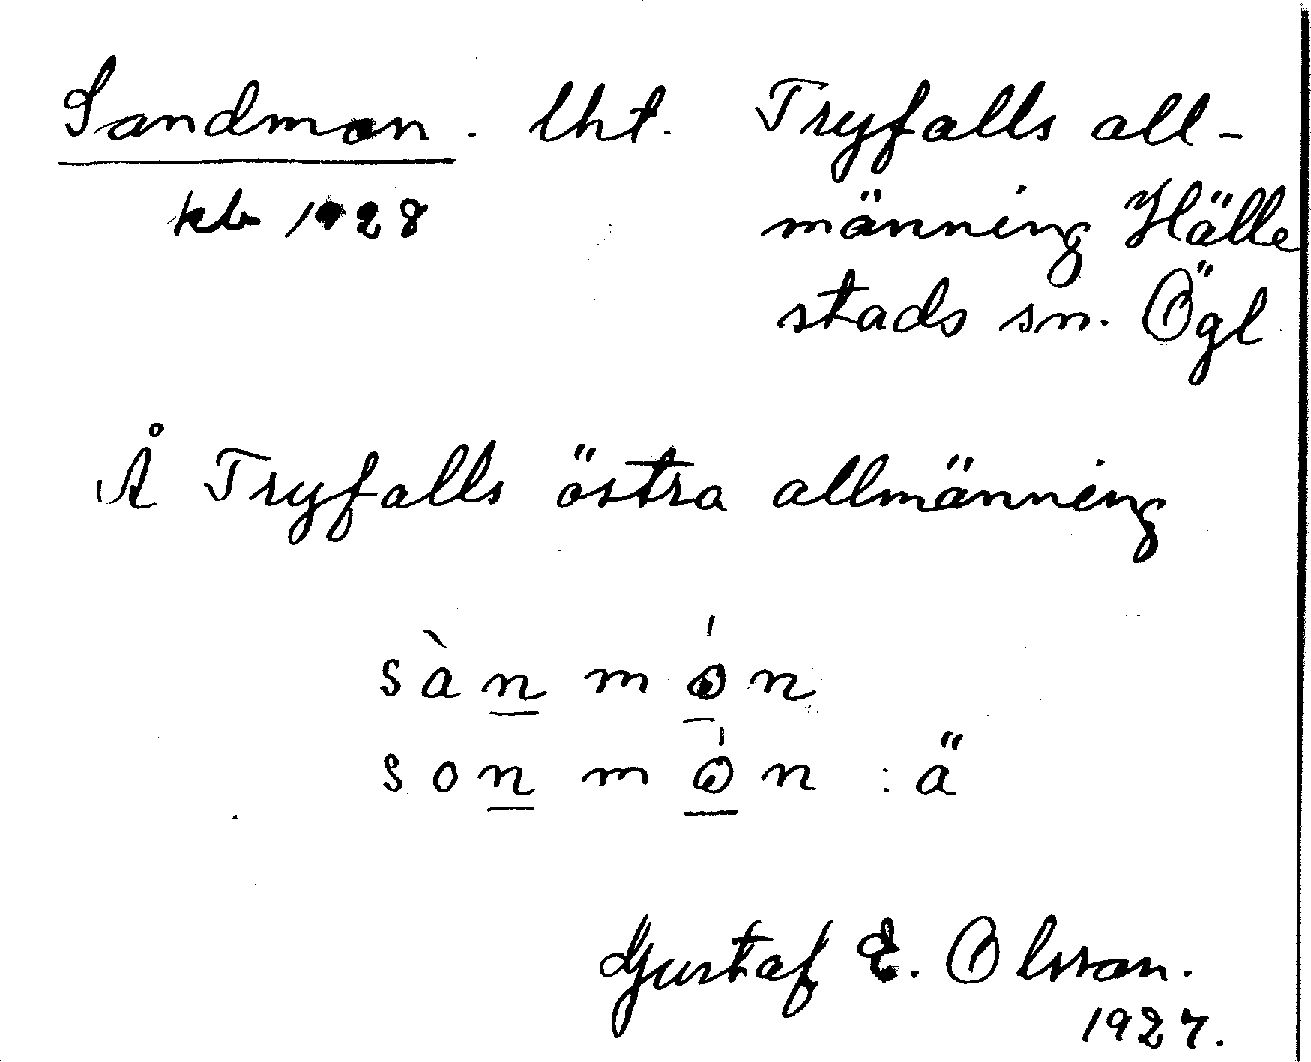 Sandmon. lht. Tryfalls all-
kb 1928 männing Hälle
stads sn. Ögl
Å Tryfalls östra allmänning
sàn món
son món : ä
Gustaf E. Olsson.
1927.